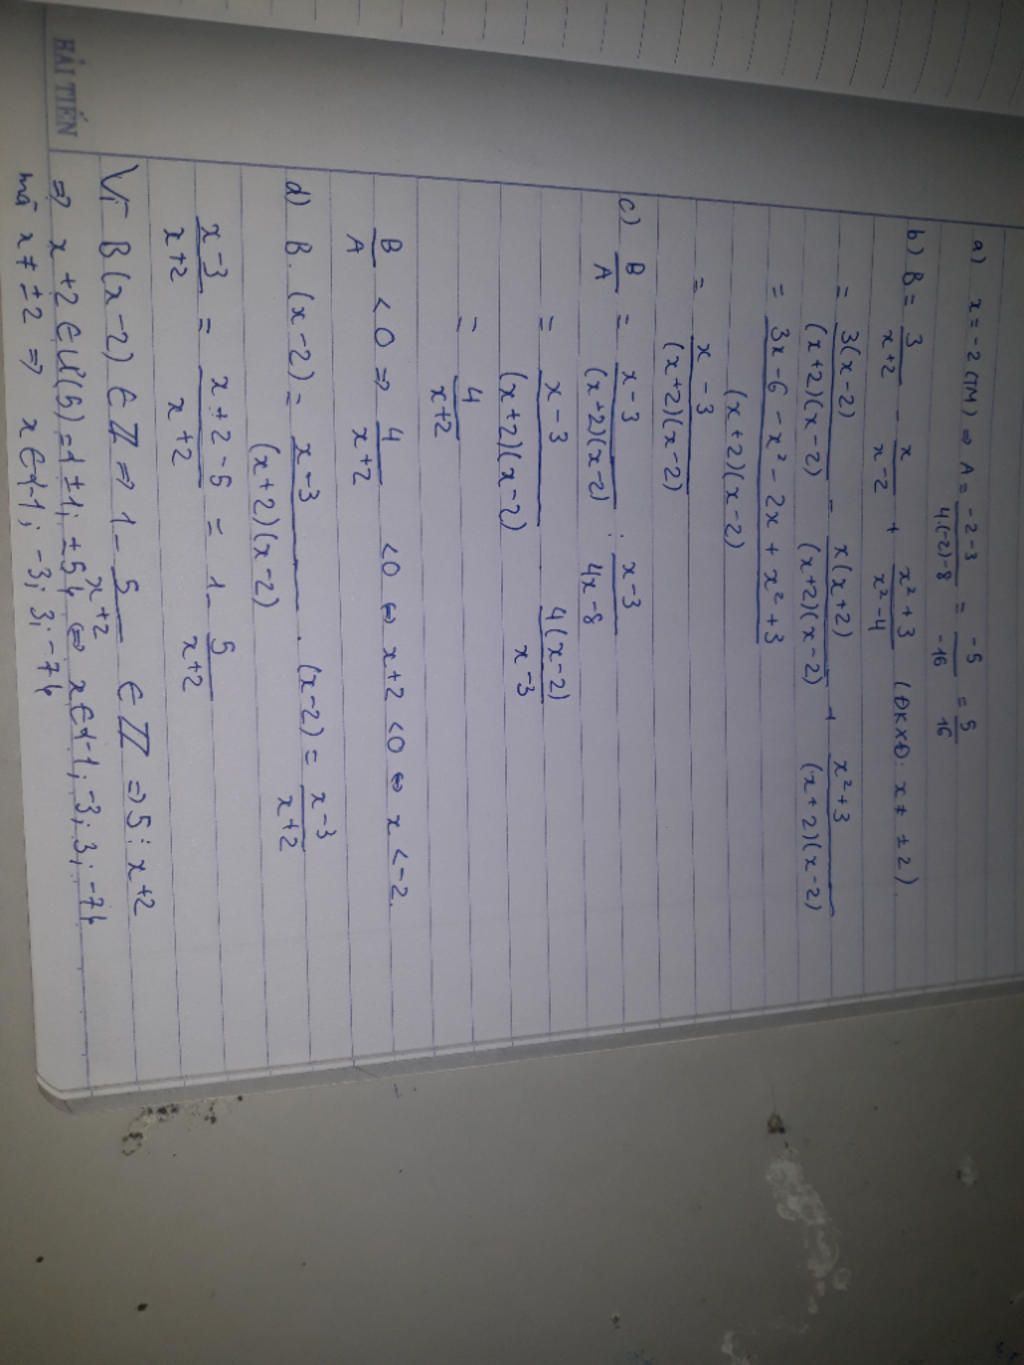 a) x = -2 (TM) ⇒ A = (-2-3)/(4.(-2)-8) = -5/-16 = 5/16
b) B = 3/(x+2) - x/(x-2) + (x²+3)/(x²-4) (ĐKXĐ: x ≠ ±2).
= 3(x-2)/((x+2)(x-2)) - x(x+2)/((x+2)(x-2)) + (x²+3)/((x+2)(x-2))
= (3x-6-x²-2x+x²+3)/((x+2)(x-2))
= (x-3)/((x+2)(x-2))
c) B/A = (x-3)/((x+2)(x-2)) : (x-3)/(4x-8)
= (x-3)/((x+2)(x-2)) . 4(x-2)/(x-3)
= 4/(x+2)
B/A < 0 ⇒ 4/(x+2) < 0 ⇔ x+2 < 0 ⇔ x < -2.
d) B.(x-2) = (x-3)/((x+2)(x-2)) . (x-2) = (x-3)/(x+2)
(x-3)/(x+2) = (x+2-5)/(x+2) = 1 - 5/(x+2)
Vì B(x-2) ∈ Z ⇒ 1 - 5/(x+2) ∈ Z ⇒ 5 ⋮ x+2
⇒ x+2 ∈ Ư(5) = {±1; ±5} ⇔ x ∈ {-1; -3; 3; -7}
mà x ≠ ±2 ⇒ x ∈ {-1; -3; 3; -7}
HẢI TIẾN